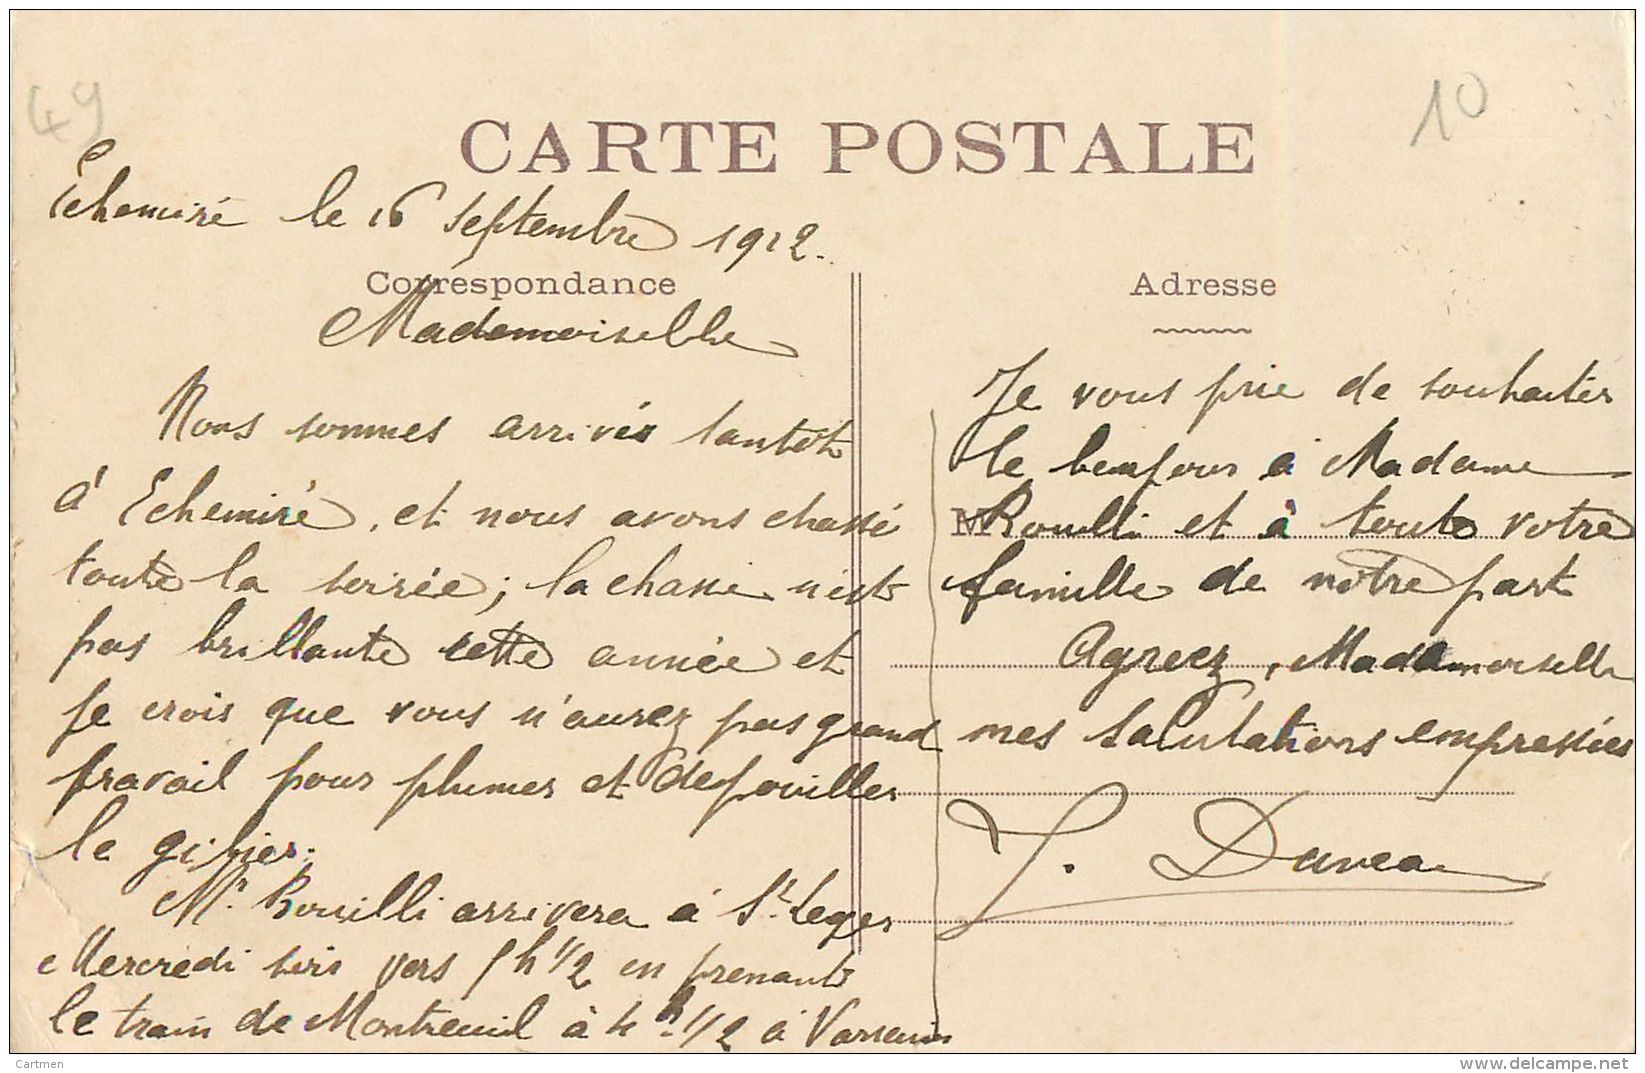 49
10
CARTE POSTALE
Echemiré le 16 Septembre 1912.
Correspondance
Mademoiselle
Nous sommes arrivés tantôt
à Echemiré, et nous avons chassé
toute la soirée; la chasse n'est
pas brillante cette année et
je crois que vous n'aurez pas grand
travail pour plumer et dépouiller
le gibier.
Mr Rouilli arrivera à St Leger
Mercredi soir vers 5h 1/2 en prenant
le train de Montreuil à 4 h. 1/2 à Varrains
Adresse
Je vous prie de souhaiter
le bonjour à Madame
M
Rouilli et à toute votre
famille de notre part
Agreez, Mademoiselle
mes salutations empressées
J. Duveau
Cartmen
www.delcampe.net